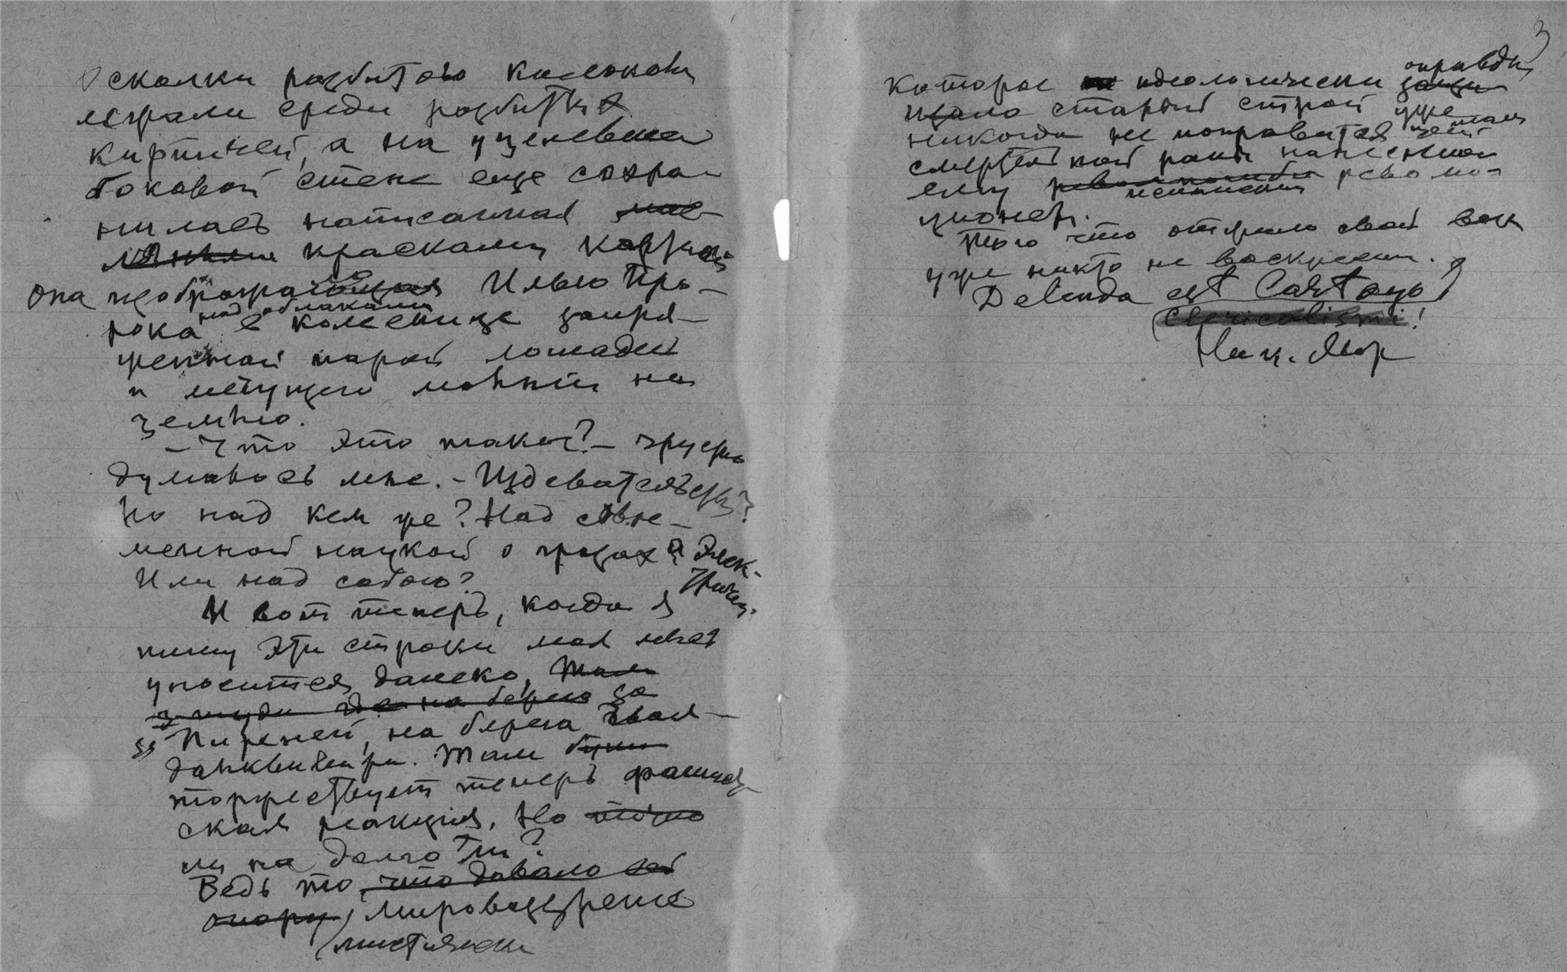 Осколки разбитого колокола
лежали среди разбитых
кирпичей, а на уцелевшей
боковой стене еще сохра-
нилась написанная
красками картина
она изображающая Илью Про-
рока над облаками в колеснице запря-
женной парой лошадей
и мечущего молнии на
землю.
– Что это такое? – грустно
думалось мне. – Издевательство?
Но над кем же? Над совре-
менной наукой о грозах и Элек-
тричест.
Или над собою?
И вот теперь, когда я
пишу эти строки моя мысль
уносится далеко, там
где на берега за
за Пиреней, на берега Гвал-
данквивира. Там
торжествует теперь фашист-
ская реакция. Но
ли на долго ли?
Ведь то, что давало ей
опору, мировоззрение
мистически
3
оправды
Которое идеологически защи
щало старый строй уже
никогда не поправится от той
смертельной раны нанесенной
ему револю-
ционеры.
Того что отжило свой век
уже никто не воскресит.
Delenda est Cartago
clericalismi!
Ник. Мор